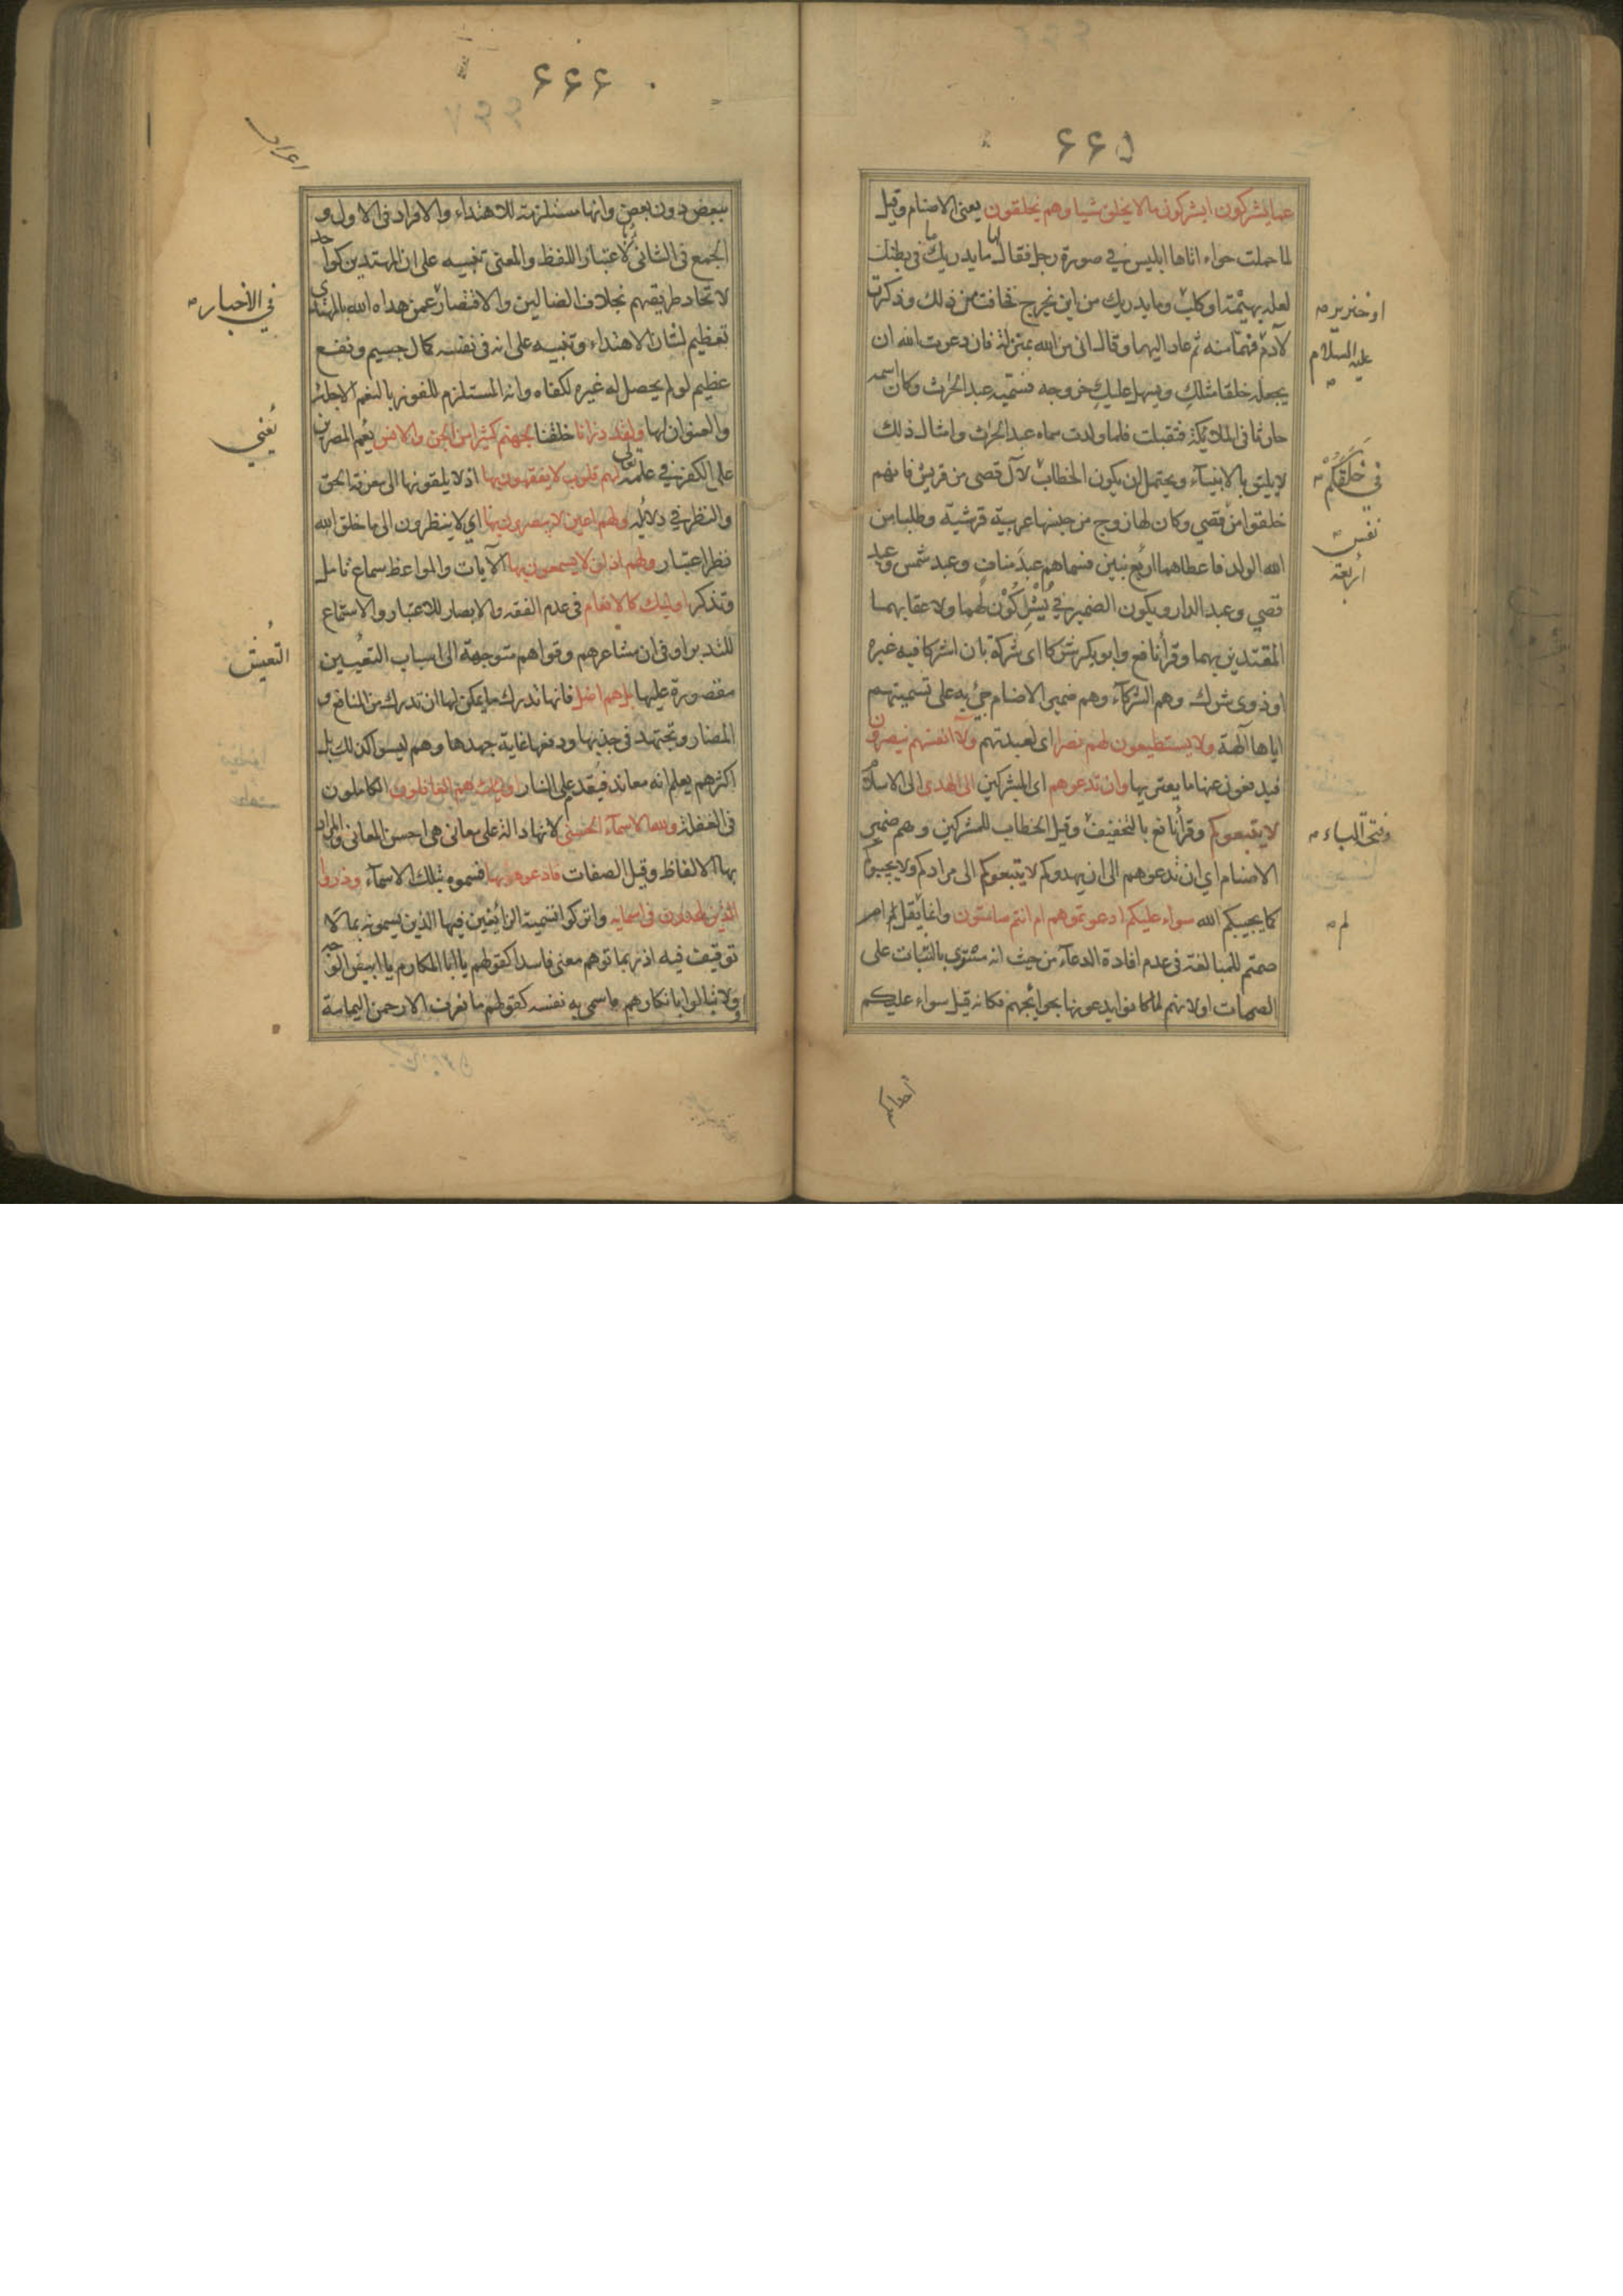 ٦٦٥
عما يشركون ايشركون ما لا يخلق شيا وهم يخلقون يعنى الاصنام وقيل
لما حملت حواء اتاها ابليس في صورة رجل فقال لها ما يدريك ما في بطنك
لعله بهيمة او كلب وما يدريك من اين يخرج فخافت من ذلك وذكرت
لآدم فهما منه ثم عاد اليهما وقال انى من الله بمنزلة فان دعوت الله ان
يجعله خلقا مثلك ويسهل عليك خروجه فسميه عبد الحرث وكان اسمه
حارثا فى الملائكة فتقبلت فلما ولدت سماه عبد الحرث وامثال ذلك
لا يليق بالانبياء ويحتمل ان يكون الخطاب لآل قصى من قريش فانهم
خلقوا من قصي وكان لها زوج من جنسها عربية قرشية وطلبا من
الله الولد فاعطاهما اربع بنين فسماهم عبد مناف وعبد شمس وعبد
قصي وعبد الدار ويكون الضمير في يُشْرِكُوْن لهما ولاعقابهما
المقتدين بهما وقرأ نافع وابو بكر شركا اى شركة بان اشركا فيه غيره
او ذوى شرك وهم الشركآء وهم ضمير الاصنام جئ به على تسميتهم
اياها آلهة ولا يستطيعون لهم نصرا اى لعبدتهم ولآ انفسهم ينصرون
فيدفعون عنها ما يعتريها وان تدعوهم اى المشركين الى الهدى الى الاسلام
لا يتبعوكم وقرأ نافع بالتخفيف وقيل الخطاب للمشركين وهم ضمير
الاصنام اي ان تدعوهم الى ان يهدوكم لا يتبعوكم الى مرادكم ولا يجيبوكم
كما يجيبكم الله سواء عليكم ادعوتموهم ام انتم صامتون وانما يقل ام
صمتم للمبالغة فى عدم افادة الدعآء من حيث انه مسوى بالثبات على
الصمات او لانهم لما كانوا يدعونها بحوائجهم فكانه قيل سواء عليكم
او خنزير
عليه السلام
في خَلَقَكُمْ
نفس
أربعة
وفتح الباء
لم
٦٦٦
ببعض دون بعض وانها مستلزمة للاهتداء والافراد فى الاول و
الجمع فى الثانى لاعتبار اللفظ والمعنى تنبيه على ان المهتدين كواحد
لاتحاد طريقهم بخلاف الضالين والاقتصار عمن هداه الله بالمهتدى
تعظيم لشان الاهتداء وتنبيه على انه فى نفسه كمال جسيم ونفع
عظيم لو لم يحصل له غيره لكفاه وانه المستلزم للفوز بالنعم الاجلة
والعنوان لها ولقد ذرانا خلقنا لجهنم كثيرا من الجن والانس يعم المصرين
على الكفر في علمه تعالى لهم قلوب لا يفقهون بها اذ لا يلقونها الى معرفة الحق
والنظر في دلائله ولهم اعين لا يبصرون بها اي لا ينظرون الى ما خلق الله
نظر اعتبار ولهم اذان لا يسمعون بها الآيات والمواعظ سماع تامل
وتذكر اوليك كالانعام فى عدم الفقه والابصار للاعتبار والاستماع
للتدبر او فى ان مشاعرهم وقواهم متوجهة الى اسباب التعيين
مقصورة عليها بل هم اضل فانها تدرك ما يمكن لها ان تدرك من المنافع و
المضار وتجتهد فى جذبها ودفعها غاية جهدها وهم ليسوا كذلك بل
اكثرهم يعلم انه معاند فيقدم على النار اوليك هم الغافلون الكاملون
فى الغفلة ولله الاسمآء الحسنى لانها دالة على معانى هى احسن المعانى والمراد
بها الالفاظ وقيل الصفات فادعوه بها فسموه بتلك الاسمآء وذروا
الذين يلحدون فى اسمايه واتركوا تسمية الزائغين فيها الذين يسمونه بما لا
توقيف فيه اذ ربما توهم معنى فاسدا كقولهم يا ابا المكارم يا ابيض الوجه
ولا تبالوا بانكارهم ما سمى به نفسه كقولهم ما نعرف الا رحمن اليمامة
في الأخبار
يعني
التعيش